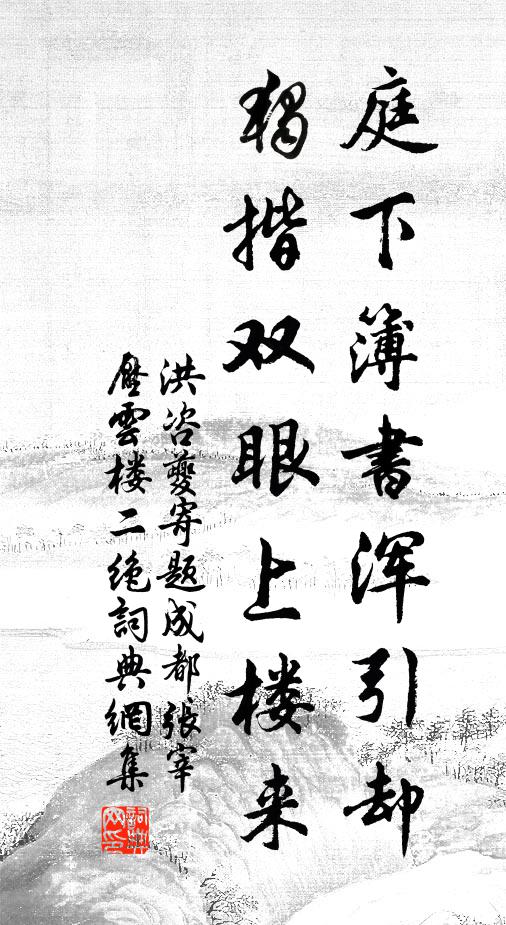 庭下簿书浑引却
独揩双眼上楼来
洪咨夔寄题成都张宰
压云楼二绝词典网集